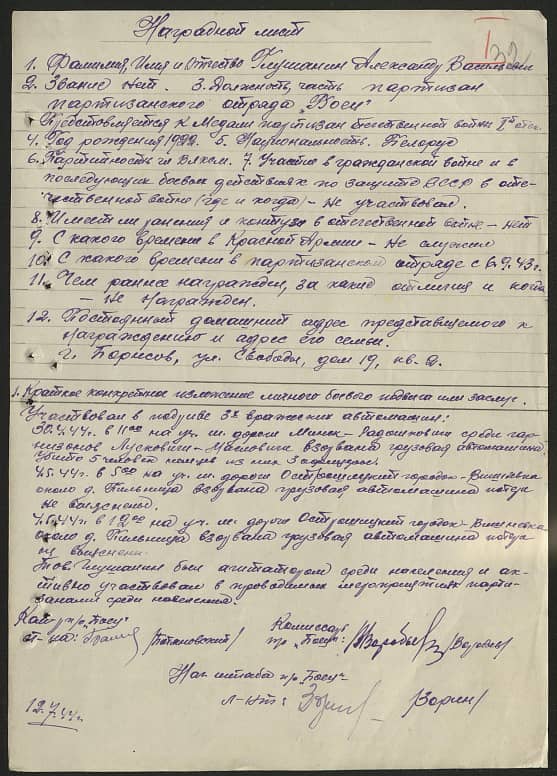 Наградной лист
1. Фамилия, Имя и Отчество Глушанин Александр Васильевич
2. Звание нет. 3. Должность, часть партизан
партизанского отряда "Боец"
Представляется к Медали партизан отечественной войны II ой степ.
4. Год рождения 1922. 5. Национальность. Белорус
6. Партийность чл ВЛКСМ. 7. Участие в гражданской войне и в
последующих боевых действиях по защите СССР в оте-
чественной войне /где и когда/ - Не участвовал.
8. Имеет ли ранения и контузии в отечественной войне - нет
9. С какого времени в Красной Армии - Не служил
10. С какого времени в партизанской отряде с 6.9.43г.
11. Чем раннее награжден, за какие отличия и когда
- Не Награжден.
12. Постоянный домашний адрес представляемого к
награждению и адрес его семьи.
г. Борисов, ул. Свободы, дом 19, кв. 2.
1. Краткое конкретное изложение личного боевого подвига или заслуг.
Участвовал в подрыве 3х вражеских автомашин:
30.4.44г. в 11 00 на уч. ш. дороги Минск - Радошковичи среди гар-
низонов взорвана грузовая автомашина
убито 5 человек немцев из них
4.5.44г. в 5 00 на уч. ш. дороги Острошицкий городок - Вишневка
около д. Пильница взорвана грузовая автомашина потери
не выяснены.
7.5.44г в 12 00 на уч. ш. дороги Острошицкий городок - Вишневка
около д. Пильница взорвана грузовая автомашина потери
не выяснены.
Тов. Глушанин был агитатором среди населения и ак-
тивно участвовал в проводимых мероприятиях парти-
занами среди населения.
Ком-р п/о "Боец" Комиссар
ст-на: /Потановский/ п/о "Боец": /Воробьев/
Нач. штаба п/о "Боец"
л-нт: /Зорин/
12.7.44г.